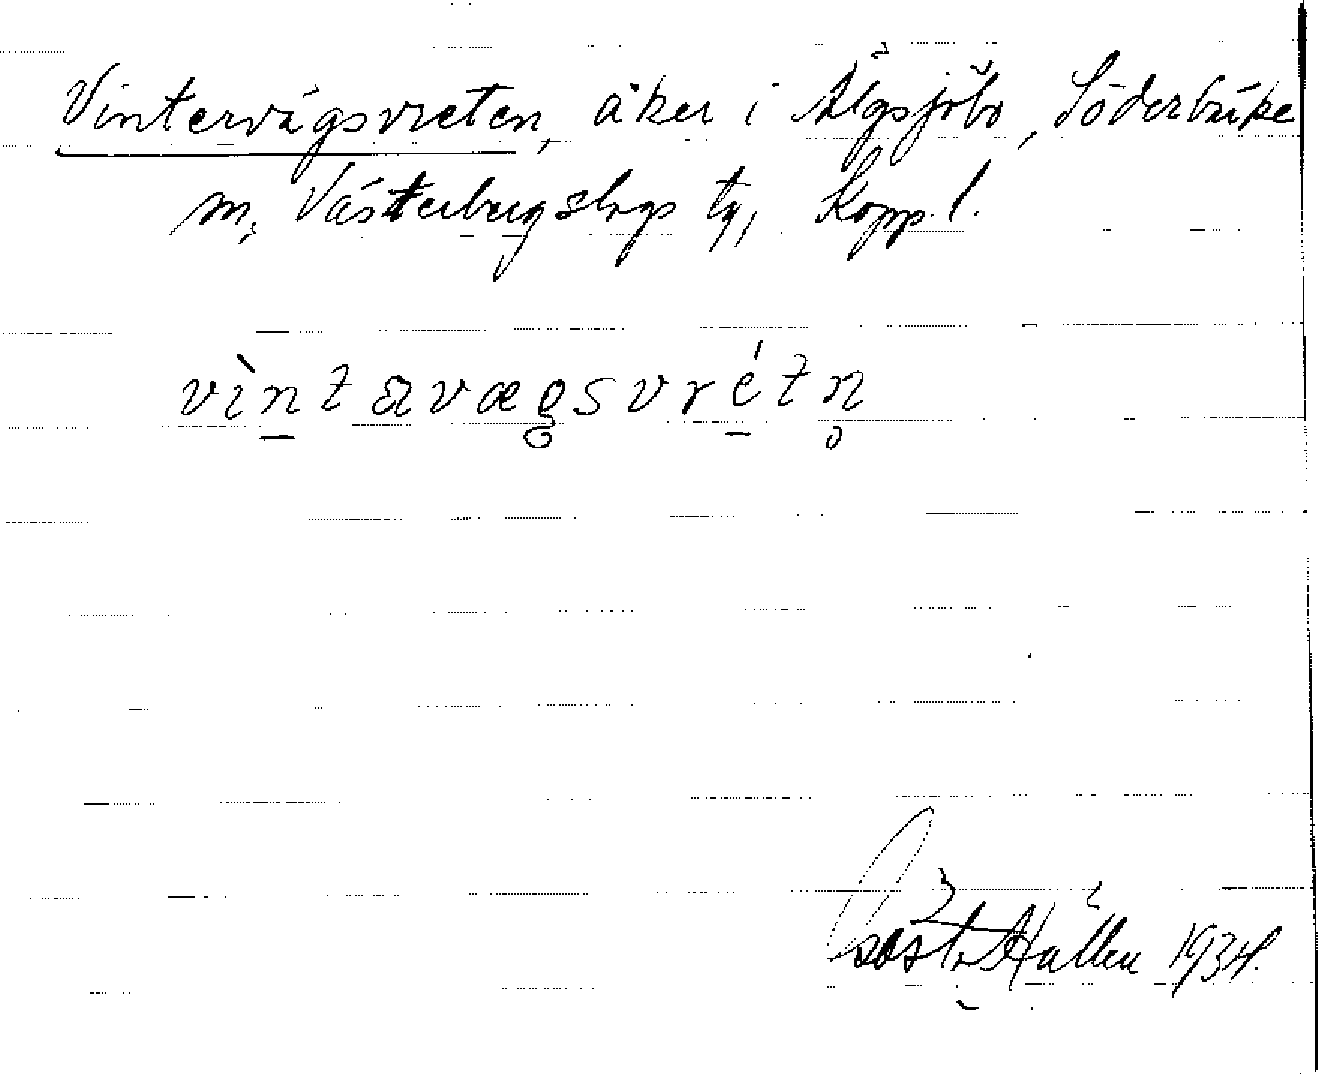 Vintervägsvreten, åker i Älgsjöbo, Söderbärke
sn, Västerbergslags tg, Kopp. l.
vìntavægsvrétn
Gösta Hallén 1934.